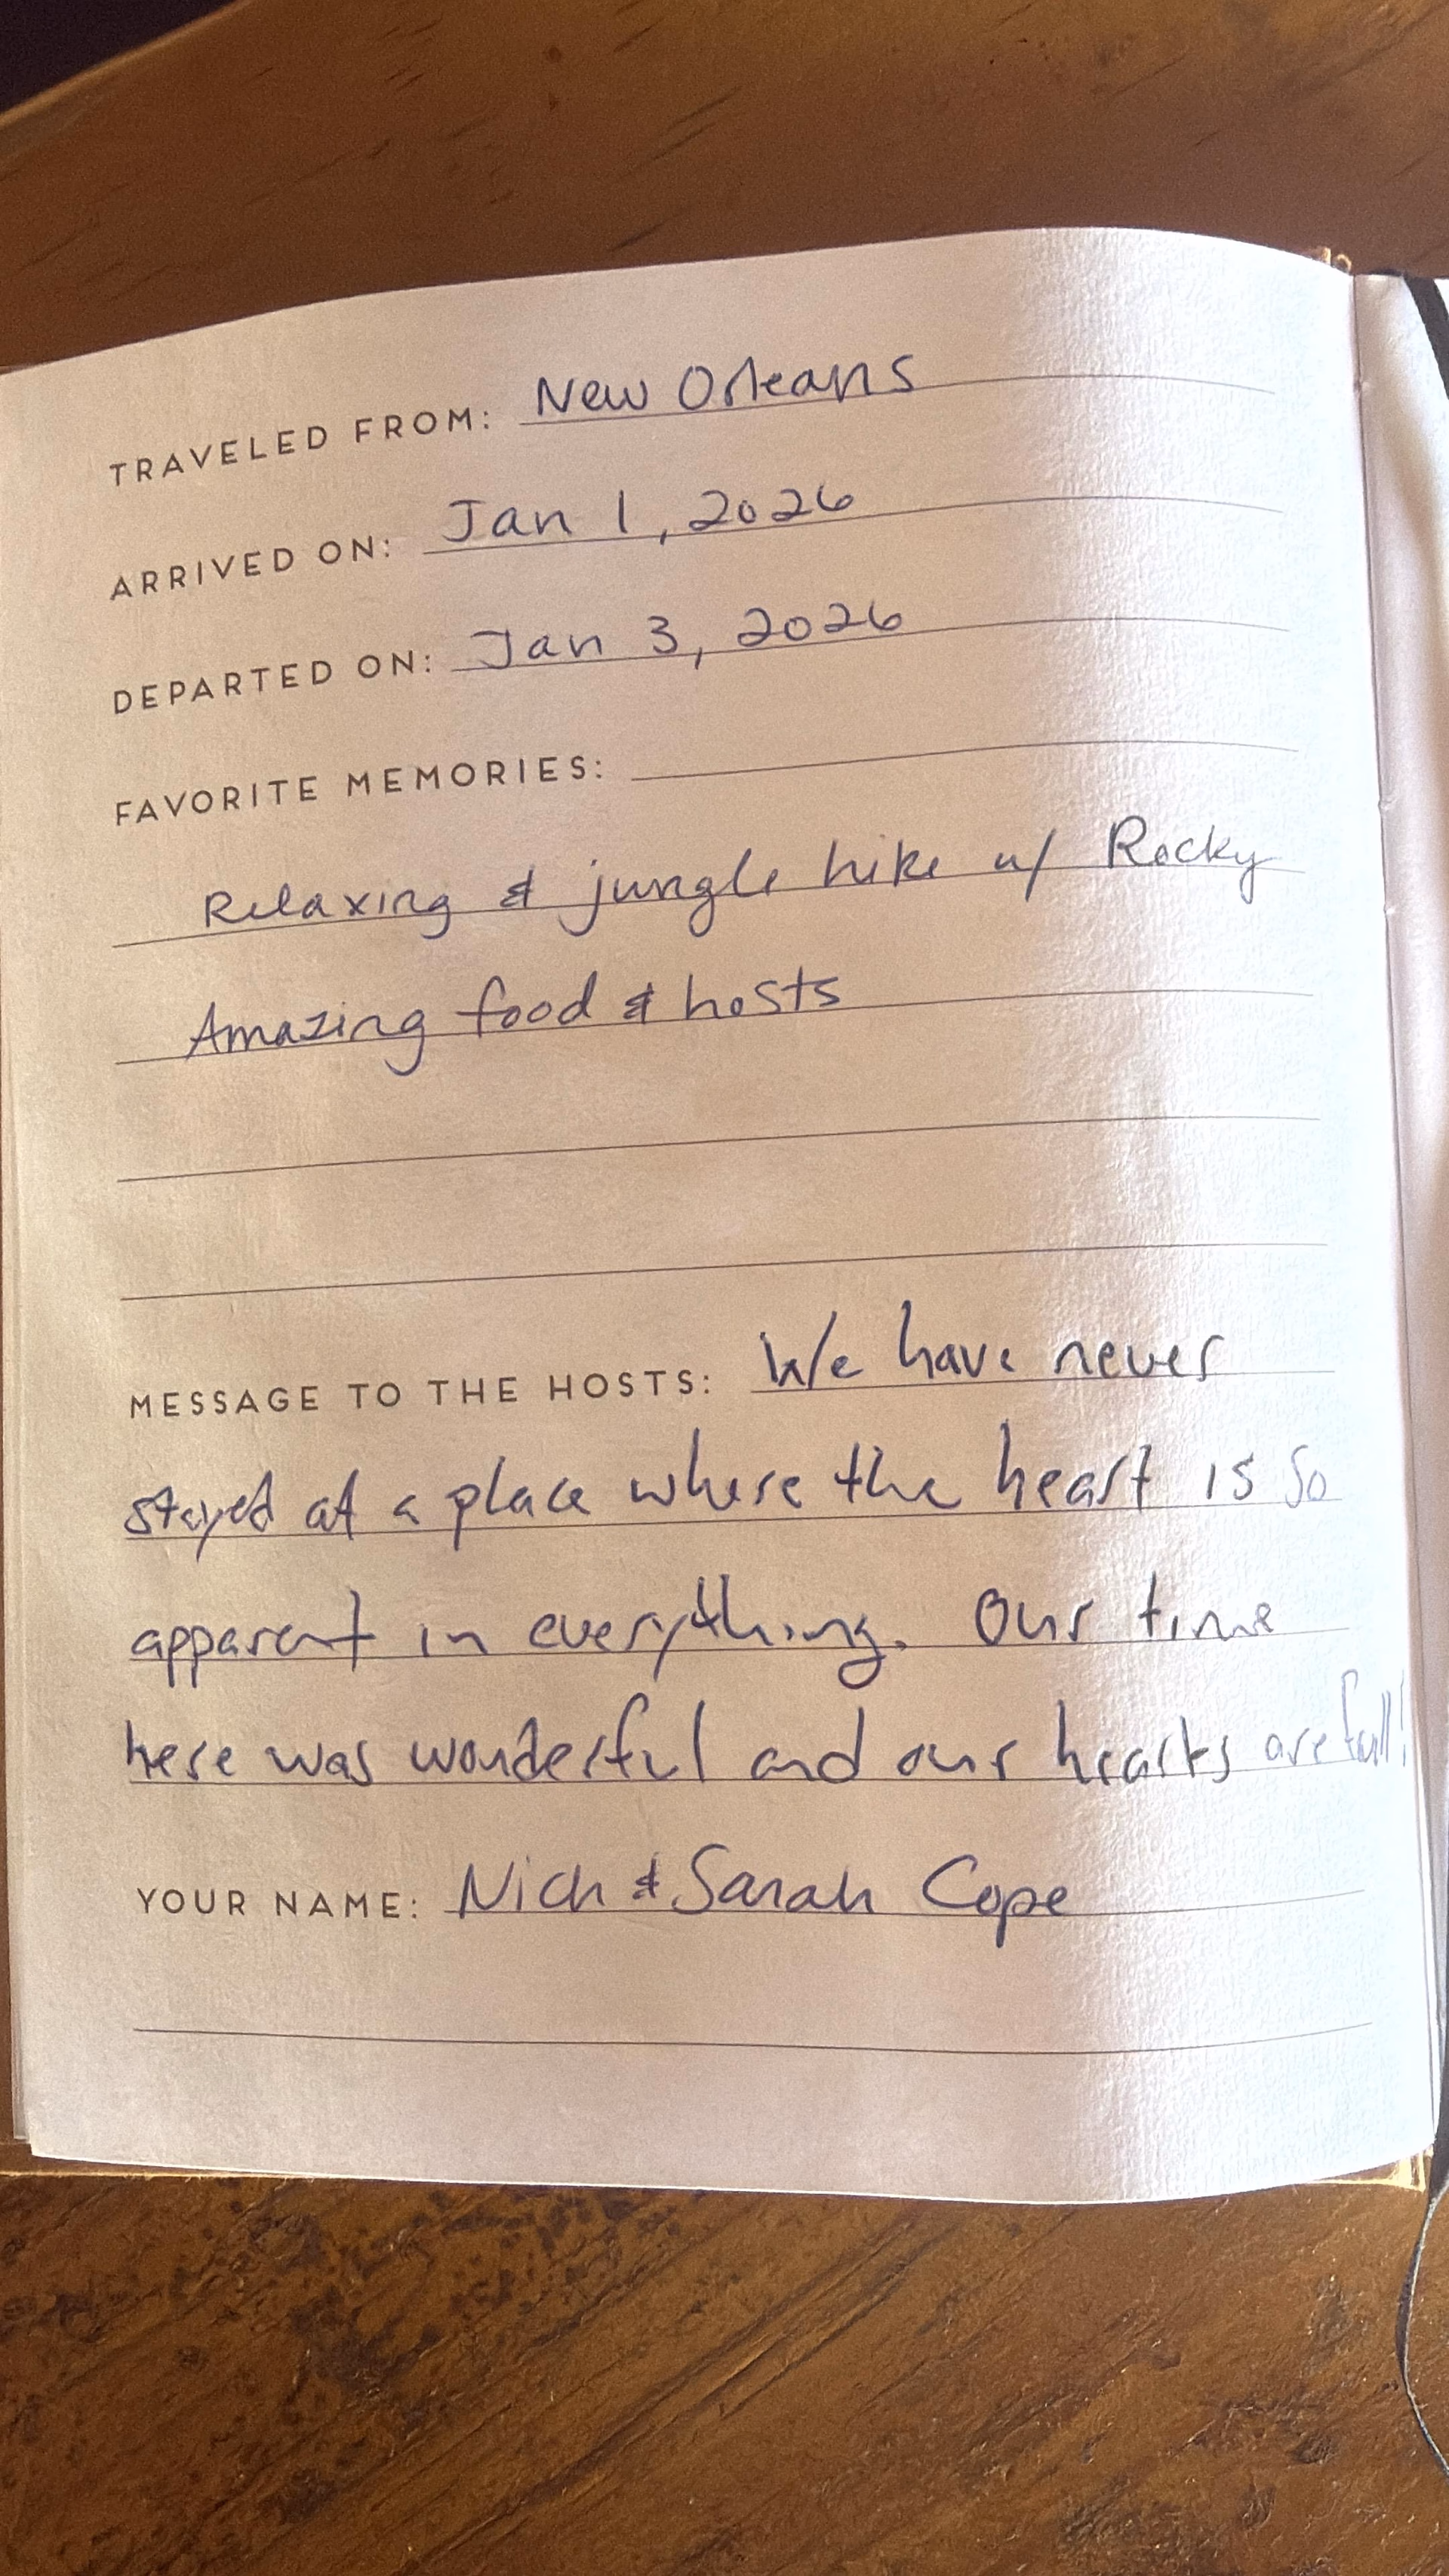 TRAVELED FROM: New Orleans
ARRIVED ON: Jan 1, 2026
DEPARTED ON: Jan 3, 2026
FAVORITE MEMORIES:
Relaxing & jungle hike w/ Rocky
Amazing food & hosts
MESSAGE TO THE HOSTS: We have never
stayed at a place where the heart is so
apparent in everything. Our time
here was wonderful and our hearts are full!
YOUR NAME: Nick & Sarah Cope